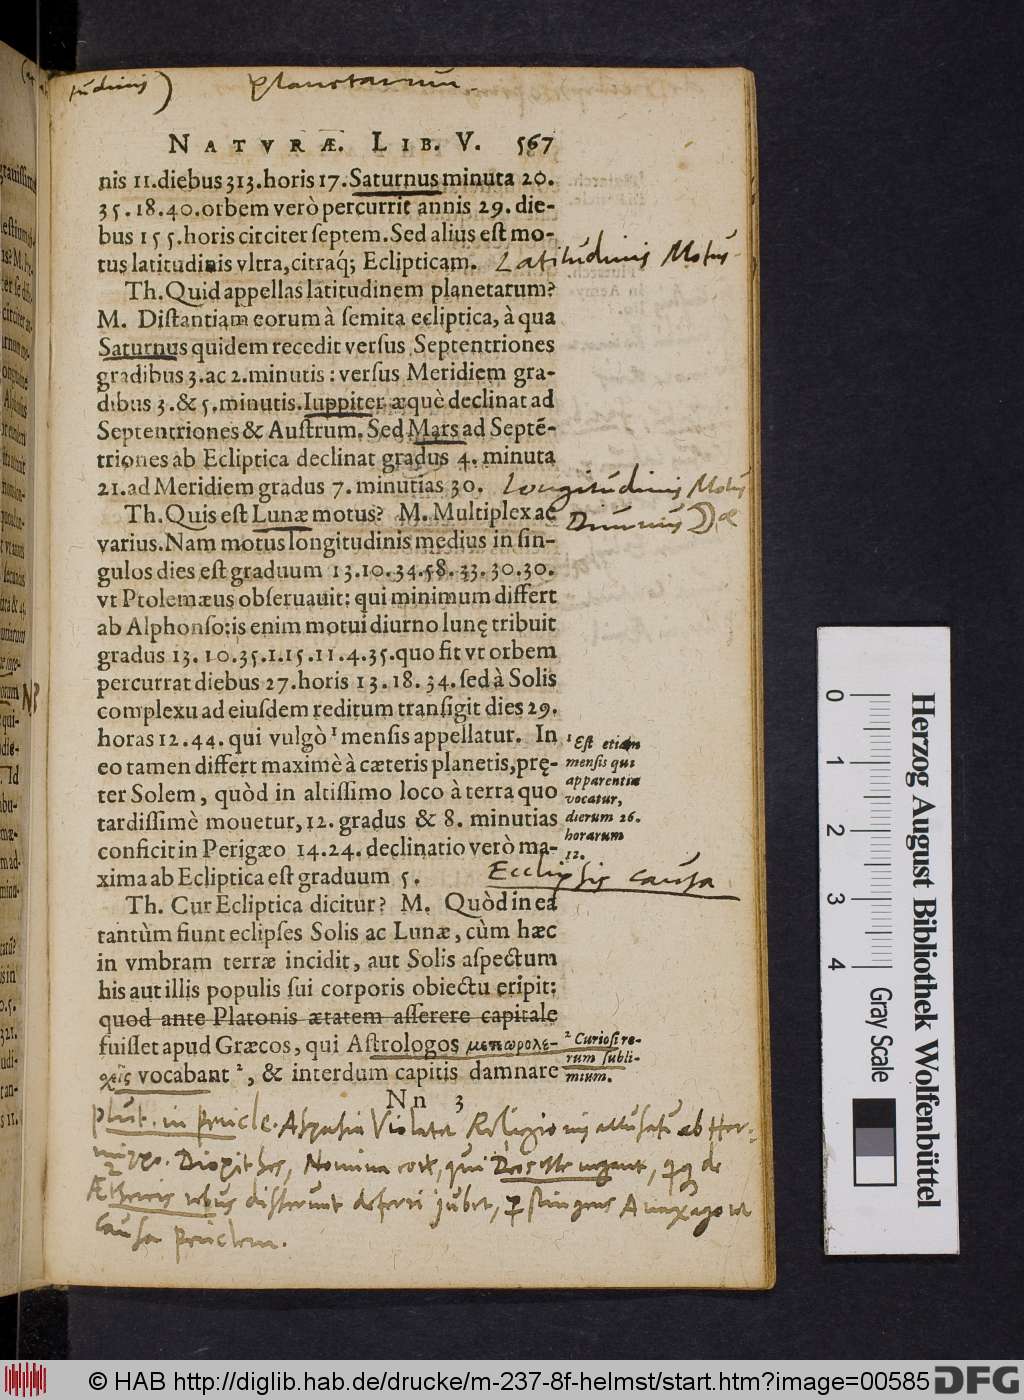 tudinis) Planetarum.
NATVRÆ. LIB. V. 567
nis 11.diebus 313.horis 17.Saturnus minuta 20.
35.18.40.orbem verò percurrit annis 29. die-
bus 155.horis circiter ſeptem.Sed alius eſt mo-
tus latitudinis vltra,citraq́; Eclipticam.
Latitudinis Motus
Th.Quid appellas latitudinem planetarum?
M. Diſtantiam eorum à ſemita ecliptica, à qua
Saturnus quidem recedit verſus Septentriones
gradibus 3.ac 2.minutis : verſus Meridiem gra-
dibus 3.& 5.minutis.Iuppiter æquè declinat ad
Septentriones & Auſtrum. Sed Mars ad Septē-
triones ab Ecliptica declinat gradus 4. minuta
21.ad Meridiem gradus 7. minutias 30.
Longitudinis Motus
Th.Quis eſt Lunæ motus? M. Multiplex ac
Diurnus
varius.Nam motus longitudinis medius in ſin-
gulos dies eſt graduum 13.10.34.58.33.30.30.
vt Ptolemæus obſeruauit: qui minimum differt
ab Alphonſo:is enim motui diurno lunę tribuit
gradus 13.10.35.1.15.11.4.35.quo fit vt orbem
percurrat diebus 27.horis 13.18.34. ſed à Solis
complexu ad eiuſdem reditum tranſigit dies 29.
horas 12.44. qui vulgò ¹ menſis appellatur. In
eo tamen differt maximè à cæteris planetis,prę-
ter Solem, quòd in altiſſimo loco à terra quo
tardiſſimè mouetur,12. gradus & 8. minutias
conficit in Perigæo 14.24. declinatio verò ma-
xima ab Ecliptica eſt graduum 5.
¹ Eſt etiam
menſis qui
apparentiæ
vocatur,
dierum 26.
horarum
12.
Ecclipsis causa
Th. Cur Ecliptica dicitur? M. Quòd in ea
tantùm fiunt eclipſes Solis ac Lunæ, cùm hæc
in vmbram terræ incidit, aut Solis aſpectum
his aut illis populis ſui corporis obiectu eripit:
quod ante Platonis ætatem aſſerere capitale
fuiſſet apud Græcos, qui Aſtrologos μετεωρολέ-
χεῖς vocabant ², & interdum capitis damnare
² Curioſi re-
rum ſubli-
mium.
Nn 3
Plut. in Pericle. Aspasia Violatae Religionis accusata ab Her-
mippo. Diopithes, Nomina eor, qui Deos esse negant, de
Æthereis rebus disserunt deferri jubet, Anaxagorae
causa Periclem.
0
1
2
3
4
Gray Scale
Herzog August Bibliothek Wolfenbüttel
© HAB http://diglib.hab.de/drucke/m-237-8f-helmst/start.htm?image=00585
DFG